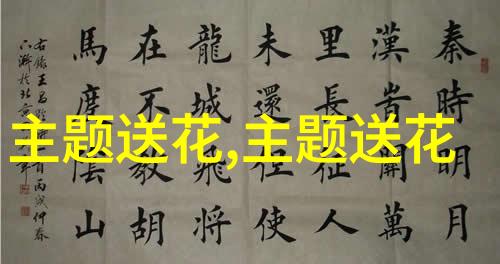 主题送花,主题送花
秦時明月
漢旹開萬
里長征人
未還但使
龍城飛將
在不教胡
馬度陰山
右錄王昌齡
丙戌仲春
於北京